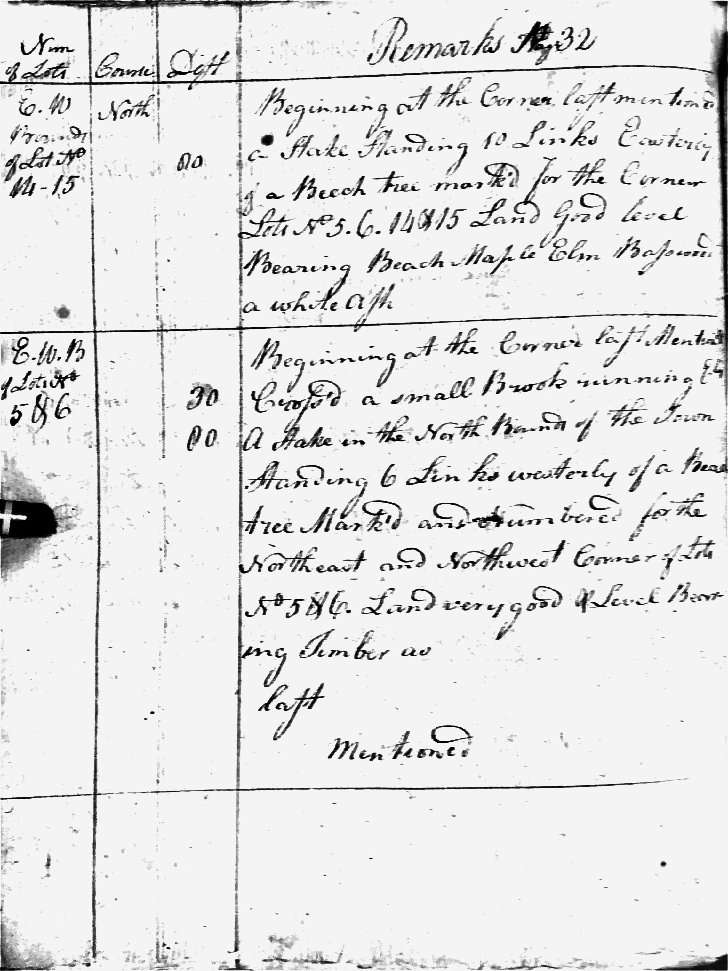 Remarks Pag 32
Num
of Lots Course Dist
E. W North Beginning at the Corner last mentioned
Bounds
of Lot No 80 a Stake Standing 10 Links Easterly
14-15 of a Beech tree mark'd for the Corner
Lots No 5. 6. 14 & 15 Land Good level
Bearing Beach Maple Elm Basswood
a white Ash
E. W. B Beginning at the Corner last Mentiond
of Lots No 30 Cross'd a small Brook running
5 & 6 80 A Stake in the North Bounds of the Town
Standing 6 Links westerly of a Beach
tree Mark'd and Numbered for the
Northeast and Northwest Corner of Lots
No 5 & 6. Land very good & Level Bear
ing Timber as
last
Mentioned